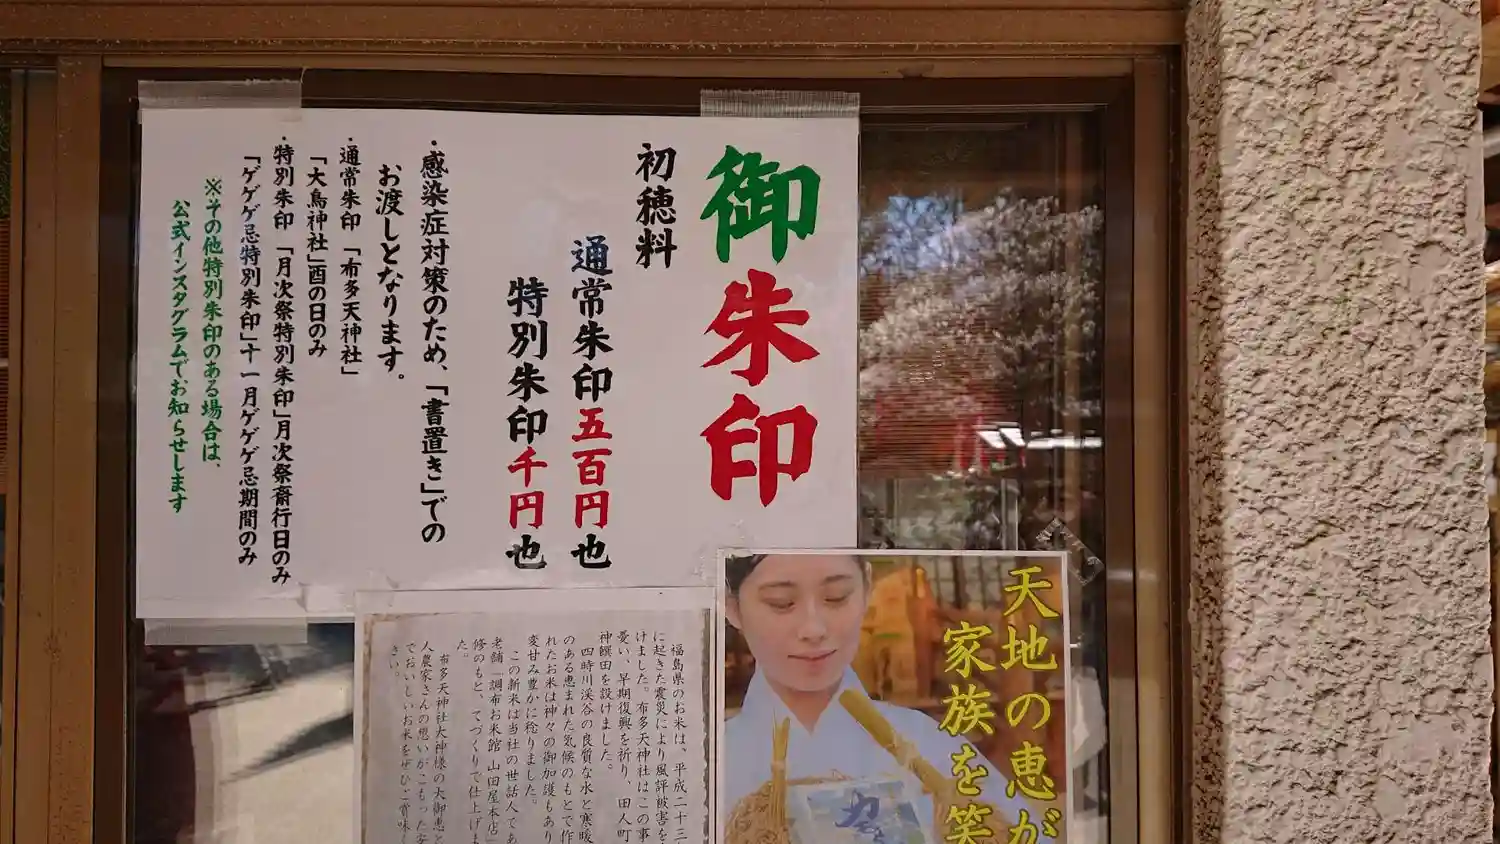 御朱印
初穂料
通常朱印五百円也
特別朱印千円也
・感染症対策のため、「書置き」での
お渡しとなります。
・通常朱印「布多天神社」
「大鳥神社」酉の日のみ
・特別朱印「月次祭特別朱印」月次祭斎行日のみ
「ゲゲゲ忌特別朱印」十一月ゲゲゲ忌期間のみ
※その他特別朱印のある場合は、
公式インスタグラムでお知らせします
天地の恵が
家族を笑
福島県のお米は、平成二十三
に起きた震災により風評被害を
けました。布多天神社はこの事
憂い、早期復興を祈り、田人町
神饌田を設けました。
四時川渓谷の良質な水と寒暖
のある恵まれた気候のもとで作
れたお米は神々の御加護もあり
変甘み豊かに稔りました。
この新米は当社の世話人であ
老舗「調布お米館 山田屋本店」
修のもと、てづくりで仕上げま
た。
布多天神社大神様の大御恵と
人農家さんの想いがこもった安
でおいしいお米をぜひご賞味く
さい。